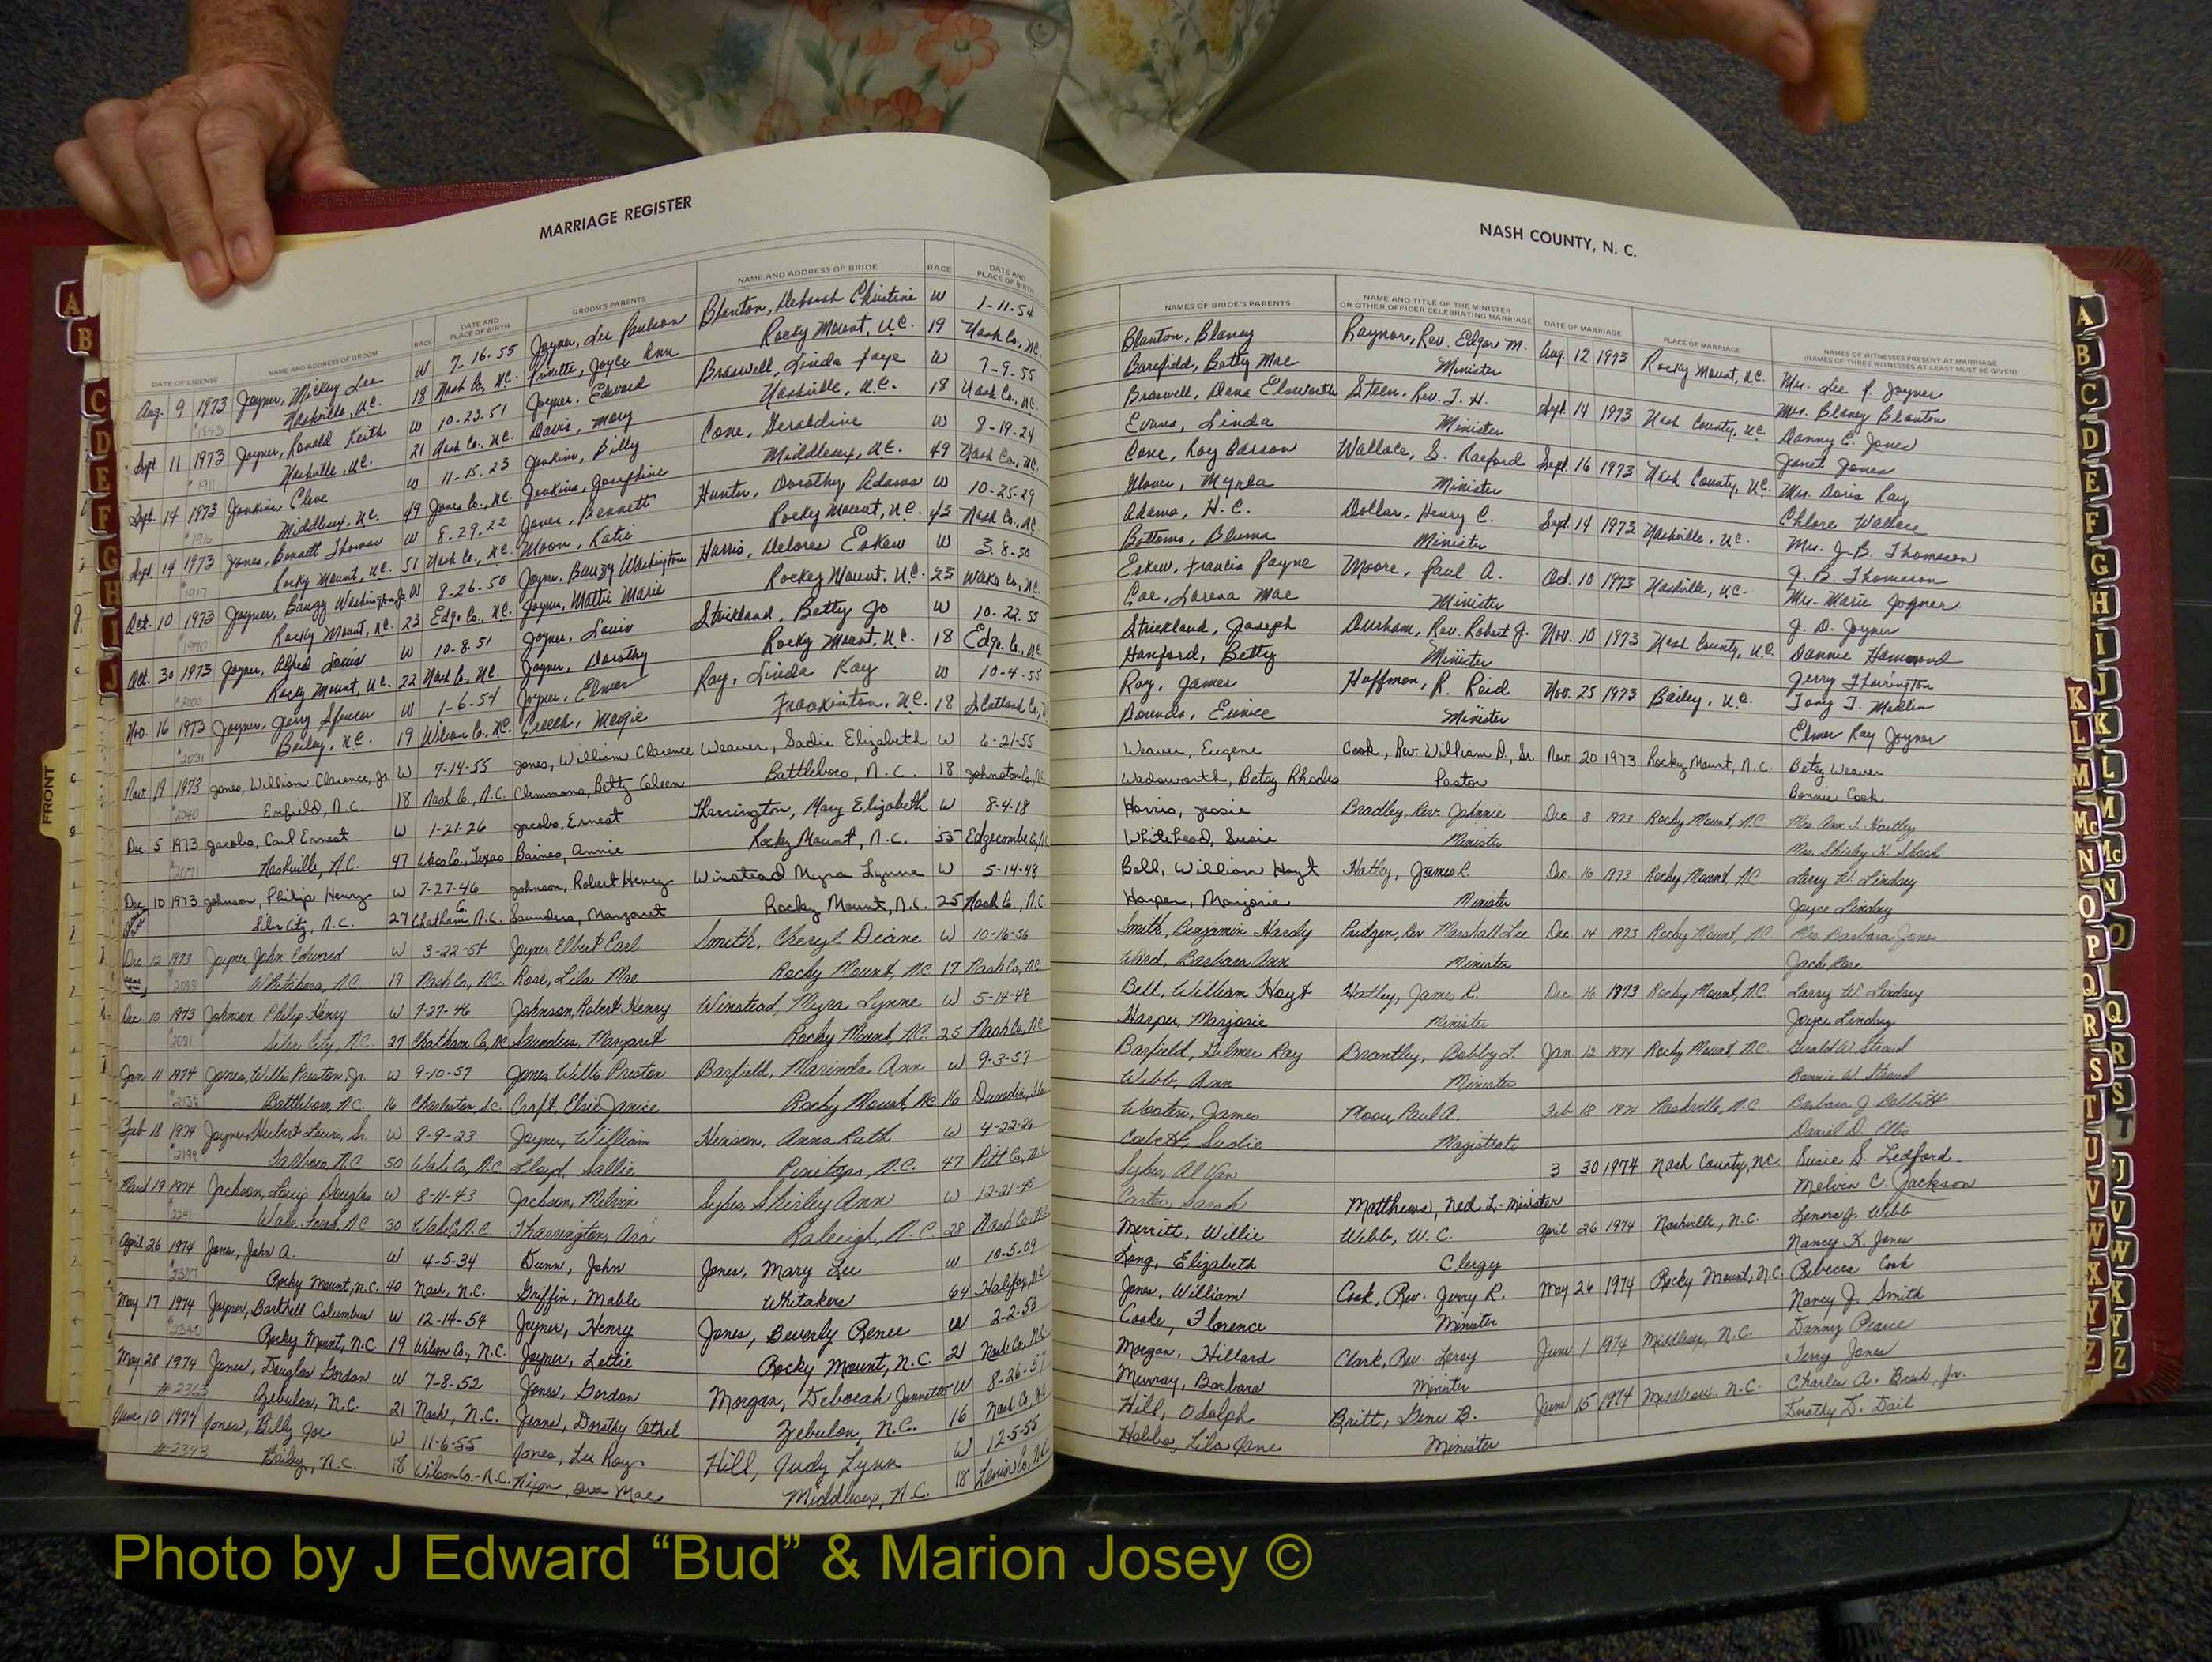 MARRIAGE REGISTER
DATE OF LICENSE NAME AND ADDRESS OF GROOM RACE DATE AND PLACE OF BIRTH GROOM'S PARENTS NAME AND ADDRESS OF BRIDE RACE DATE AND PLACE OF BIRTH
Aug. 9 1973 Joyner, Mickey Lee W 7-16-55 Joyner, Lee Paulson Blanton, Deborah Christine W 1-11-54
Nashville, N.C. 18 Nash Co., N.C. Privette, Joyce Ann Rocky Mount, N.C. 19 Nash Co., N.C.
Sept. 11 1973 Joyner, Ronald Keith W 10-23-51 Joyner, Edward Braswell, Linda Faye W 7-9-55
Nashville, N.C. 21 Nash Co., N.C. Davis, Mary Nashville, N.C. 18 Nash Co., N.C.
Sept. 14 1973 Jenkins Cleve W 11-15-23 Jenkins, Billy Cone, Geraldine W 8-19-24
Middlesex, N.C. 49 Jones Co., N.C. Jenkins, Josephine Middlesex, N.C. 49 Nash Co., N.C.
Sept. 14 1973 Jones, Bennett Thomas W 8-29-22 Jones, Bennett Hunter, Dorothy Adams W 10-25-29
Rocky Mount, N.C. 51 Nash Co., N.C. Moon, Katie Rocky Mount, N.C. 43 Nash Co., N.C.
Oct. 10 1973 Joyner, Bauzy Washington, Jr. W 8-26-50 Joyner, Bauzy Washington Harris, Delores Eskew W 3-8-50
Rocky Mount, N.C. 23 Edge Co., N.C. Joyner, Mattie Marie Rocky Mount, N.C. 23 Wake Co., N.C.
Oct. 30 1973 Joyner, Alfred Louis W 10-8-51 Joyner, Louis Strickland, Betty Jo W 10-22-55
Rocky Mount, N.C. 22 Nash Co., N.C. Joyner, Dorothy Rocky Mount, N.C. 18 Edge. Co., N.C.
Nov. 16 1973 Joyner, Jerry Spencer W 1-6-54 Joyner, Elmer Ray, Linda Kay W 10-4-55
Bailey, N.C. 19 Wilson Co., N.C. Creech, Margie Franklinton, N.C. 18 Scotland Co.,
Nov. 19 1973 Jones, William Clarence, Jr. W 7-14-55 Jones, William Clarence Weaver, Sadie Elizabeth W 6-21-55
#2040 Enfield, N.C. 18 Nash Co., N.C. Clemmons, Betty Coleen Battleboro, N.C. 18 Johnston Co., N.C.
Dec. 5 1973 Jacobs, Carl Ernest W 1-21-26 Jacobs, Ernest Therrington, Mary Elizabeth W 8-4-18
#2071 Nashville, N.C. 47 Waco Co., Texas Baines, Annie Rocky Mount, N.C. 55 Edgecombe Co., N.C.
Dec. 10 1973 Johnson, Philip Henry W 7-27-46 Johnson, Robert Henry Winstead Myra Lynne W 5-14-48
Siler City, N.C. 27 Chatham Co, N.C. Saunders, Margaret Rocky Mount, N.C. 25 Nash Co., N.C.
Dec 12 1973 Joyner John Edward W 3-22-54 Joyner Elbert Earl Smith, Cheryl Diane W 10-16-56
Whitakers, N.C. 19 Nash Co, N.C. Rose, Lila Mae Rocky Mount, N.C. 17 Nash Co, N.C.
Dec 10 1973 Johnson Philip Henry W 7-27-46 Johnson, Robert Henry Winstead, Myra Lynne W 5-14-48
#2091 Siler City, N.C. 27 Chatham Co, NC Saunders, Margaret Rocky Mount, N.C. 25 Nash Co, N.C.
Jan 11 1974 Jones, Willis Preston, Jr. W 9-10-57 Jones Willis Preston Barfield, Marinda Ann W 9-3-57
#2138 Battleboro, N.C. 16 Charleston S.C. Craft, Elsie Janice Rocky Mount, N.C. 16 Dunedin, Fla
Feb 18 1974 Joyner, Hubert Lewis, Sr. W 9-9-23 Joyner, William Henson, Anna Ruth W 4-22-26
#2199 Tarboro, N.C. 50 Wake Co, N.C. Lloyd, Sallie Pinetops, N.C. 47 Pitt Co, N.C.
March 19 1974 Jackson, Louis Douglas W 8-11-43 Jackson, Melvin Sykes, Shirley Ann W 12-21-45
#2241 Wake Forest, N.C. 30 Wake Co N.C. Tharrington, Ora Raleigh, N.C. 28 Nash Co, N.C.
April 26 1974 Jones, John A. W 4-5-34 Dunn, John Jones, Mary Lee W 10-5-09
#2307 Rocky Mount, N.C. 40 Nash, N.C. Griffin, Mable Whitakers 64 Halifax, N.C.
May 17 1974 Joyner, Barthell Columbus W 12-14-54 Joyner, Henry Jones, Beverly Renee W 2-2-53
#2340 Rocky Mount, N.C. 19 Wilson Co, N.C. Joyner, Lettie Rocky Mount, N.C. 21 Nash Co., N.C.
May 28 1974 Jones, Douglas Gordon W 7-8-52 Jones, Gordon Morgan, Deborah Jennette W 8-26-57
#2363 Zebulon, N.C. 21 Nash, N.C. Jeans, Dorothy Ethel Zebulon, N.C. 16 Nash Co, N.C.
June 10 1974 Jones, Billy Joe W 11-6-55 Jones, Lee Roy Hill, Judy Lynn W 12-5-55
#2393 Bailey, N.C. 18 Wilson Co.-N.C. Nixon, Ova Mae Middlesex, N.C. 18 Lenoir Co., N.C.
NASH COUNTY, N. C.
NAMES OF BRIDE'S PARENTS NAME AND TITLE OF THE MINISTER OR OTHER OFFICER CELEBRATING MARRIAGE DATE OF MARRIAGE PLACE OF MARRIAGE NAMES OF WITNESSES PRESENT AT MARRIAGE (NAMES OF THREE WITNESSES AT LEAST MUST BE GIVEN)
Blanton, Blaney Raynor, Rev. Edgar M. Aug. 12 1973 Rocky Mount, N.C. Mrs. Lee P. Joyner
Barefield, Betty Mae Minister Mrs. Blaney Blanton
Braswell, Dana Elsworth Steen, Rev. J. H. Sept. 14 1973 Nash County, N.C. Danny C. Jones
Evans, Linda Minister Janet Jones
Cone, Roy Carson Wallace, S. Raeford Sept. 16 1973 Nash County, N.C. Mrs. Doris Ray
Glover, Myrla Minister Chlore Wallace
Adams, H. C. Dollar, Henry C. Sept. 14 1973 Nashville, N.C. Mrs. J.B. Thomason
Bottoms, Bluma Minister J. B. Thomason
Eskew, Francis Payne Moore, Paul A. Oct. 10 1973 Nashville, N.C. Mrs. Marie Joyner
Coe, Lorena Mae Minister J. D. Joyner
Strickland, Joseph Durham, Rev. Robert J. Nov. 10 1973 Nash County, N.C. Dannie Hammond
Hanford, Betty Minister Jerry Tharrington
Ray, James Hoffman, R. Reid Nov. 25 1973 Bailey, N.C. Tony T. Medlin
Bounds, Eunice Minister Elmer Ray Joyner
Weaver, Eugene Cook, Rev. William D., Sr. Nov. 20 1973 Rocky Mount, N.C. Betsy Weaver
Wadsworth, Betsy Rhodes Pastor Bonnie Cook
Harris, Jessie Bradley, Rev. Johnnie Dec 8 1973 Rocky Mount, N.C. Mrs Ann J. Hartley
Whitehead, Susie Minister Mrs. Shirley H. Slach
Bell, William Hoyt Hatley, James R. Dec. 16 1973 Rocky Mount, N.C. Larry W. Lindsey
Harper, Marjorie Minister Joyce Lindsey
Smith, Benjamin Hardy Pridgen, Rev. Marshall Lee Dec 14 1973 Rocky Mount, N.C. Mrs Barbara Jones
Ward, Barbara Ann Minister Jack Rose
Bell, William Hoyt Hatley, James R. Dec. 16 1973 Rocky Mount, N.C. Larry W. Lindsey
Harper, Marjorie Minister Joyce Lindsey
Barfield, Gilmer Ray Brantley, Bobby L. Jan 12 1974 Rocky Mount, N.C. Gerald W. Stroud
Webb, Ann Minister Bonnie W. Stroud
Wooten, James Moore, Paul A. Feb 18 1974 Nashville, N.C. Barbara J Bobbitt
Corbett, Sudie Magistrate Daniel D. Ellis
Sykes, Al Van 3 30 1974 Nash County, NC Susie S. Ledford
Carter, Sarah Matthews, Ned L. Minister Melvin C. Jackson
Merritt, Willie Webb, W. C. April 26 1974 Nashville, N.C. Lenora J. Webb
Long, Elizabeth Clergy Nancy K. Jones
Jones, William Cook, Rev. Jerry R. May 26 1974 Rocky Mount, N.C. Rebecca Cook
Cooke, Florence Minister Nancy J. Smith
Morgan, Hillard Clark, Rev. Leroy June 1 1974 Middlesex, N.C. Danny Pearce
Murray, Barbara Minister Terry Jones
Hill, Odolph Britt, Gene B. June 15 1974 Middlesex, N.C. Charles A. Brad, Jr.
Hobbs, Lila Jane Minister Dorothy D. Dail
FRONT
A
B
C
D
E
F
G
H
I
J
A
B
C
D
E
F
G
H
I
J
K
L
M
Mc
N
O
P
Q
R
S
T
U
V
W
X
Y
Z
K
L
M
Mc
N
O
Q
R
S
T
U
V
W
X
Y
Z
Photo by J Edward “Bud” & Marion Josey ©